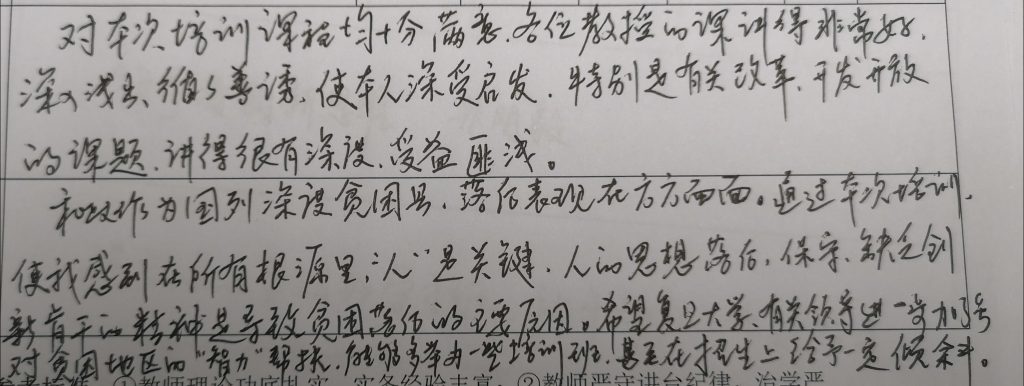 对本次培训课程均十分满意,各位教授的课讲得非常好,
深入浅出、循循善诱,使本人深受启发,特别是有关改革、开发开放
的课题,讲得很有深度,受益匪浅。
和政作为国列深度贫困县,落后表现在方方面面。通过本次培训,
使我感到在所有根源里,“人”是关键,人的思想落后,保守、缺乏创
新肯干的精神是导致贫困落后的主要原因。希望复旦大学、有关领导进一步加强
对贫困地区的“智力”帮扶,能够多举办一些培训班,甚至在招生上给予一定倾斜。
①教师理论功底扎实,实务经验丰富,②教师严守讲台纪律,治学严